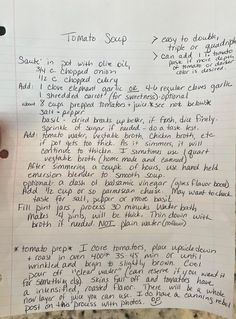 Tomato Soup
> easy to double,
triple or quadruple
> can add 1
tomato paste if more depth
of tomato or darker
color is desired
Sauté in pot with olive oil,
3/4 c. chopped onion
1/2 c. chopped celery
Add: 1 clove elephant garlic or 4-6 regular cloves garlic
1 shredded carrot (for sweetness)-optional
about 8 cups prepped tomatoes + juice * see not below
salt + pepper
basil - dried breaks up better, if fresh, dice finely.
sprinkle of sugar if needed - do a taste test.
Add: tomato juice, vegetable broth, chicken broth, etc
if pot gets too thick. As it simmers, it will
continue to thicken. I sometimes use 1 quart
vegetable broth (home made and canned)
After simmering a couple of hours, use hand held
emersion blender to smooth soup.
optional: a dash of balsamic vinegar (gives flavor boost)
Add 1/2 cup or so parmesan cheese. May want to check
taste for salt, pepper or more basil.
Fill pint jars, process 30 minutes water bath
makes 4 pints, will be thick. Thin down with
broth if needed NOT plain water (yellow)
* tomato prep: I core tomatoes, place upside down
+ roast in oven 400° 35-45 min or until
wrinkled and begin to slightly brown. Cool
pour off "clear water" (can reserve if you want it
for something else) Skins fall off and tomatoes have
a intensified, roasted flavor. There will be a whole
new layer of juice you can use. I do have a canning
post on this process with photos.